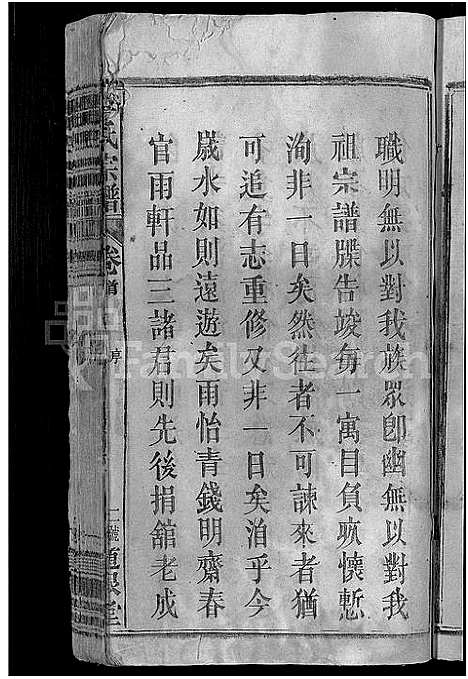 職明無以對我族眾即幽無以對我
祖宗譜牒告竣每一寓目負疚懷慙
洵非一日矣然往者不可諫來者猶
可追有志重修又非一日矣洎乎今
歲水如則遠遊矣雨怡青錢明齋春
官雨軒品三諸君則先後捐舘老成
氏宗譜
卷首
序
FamilySearch